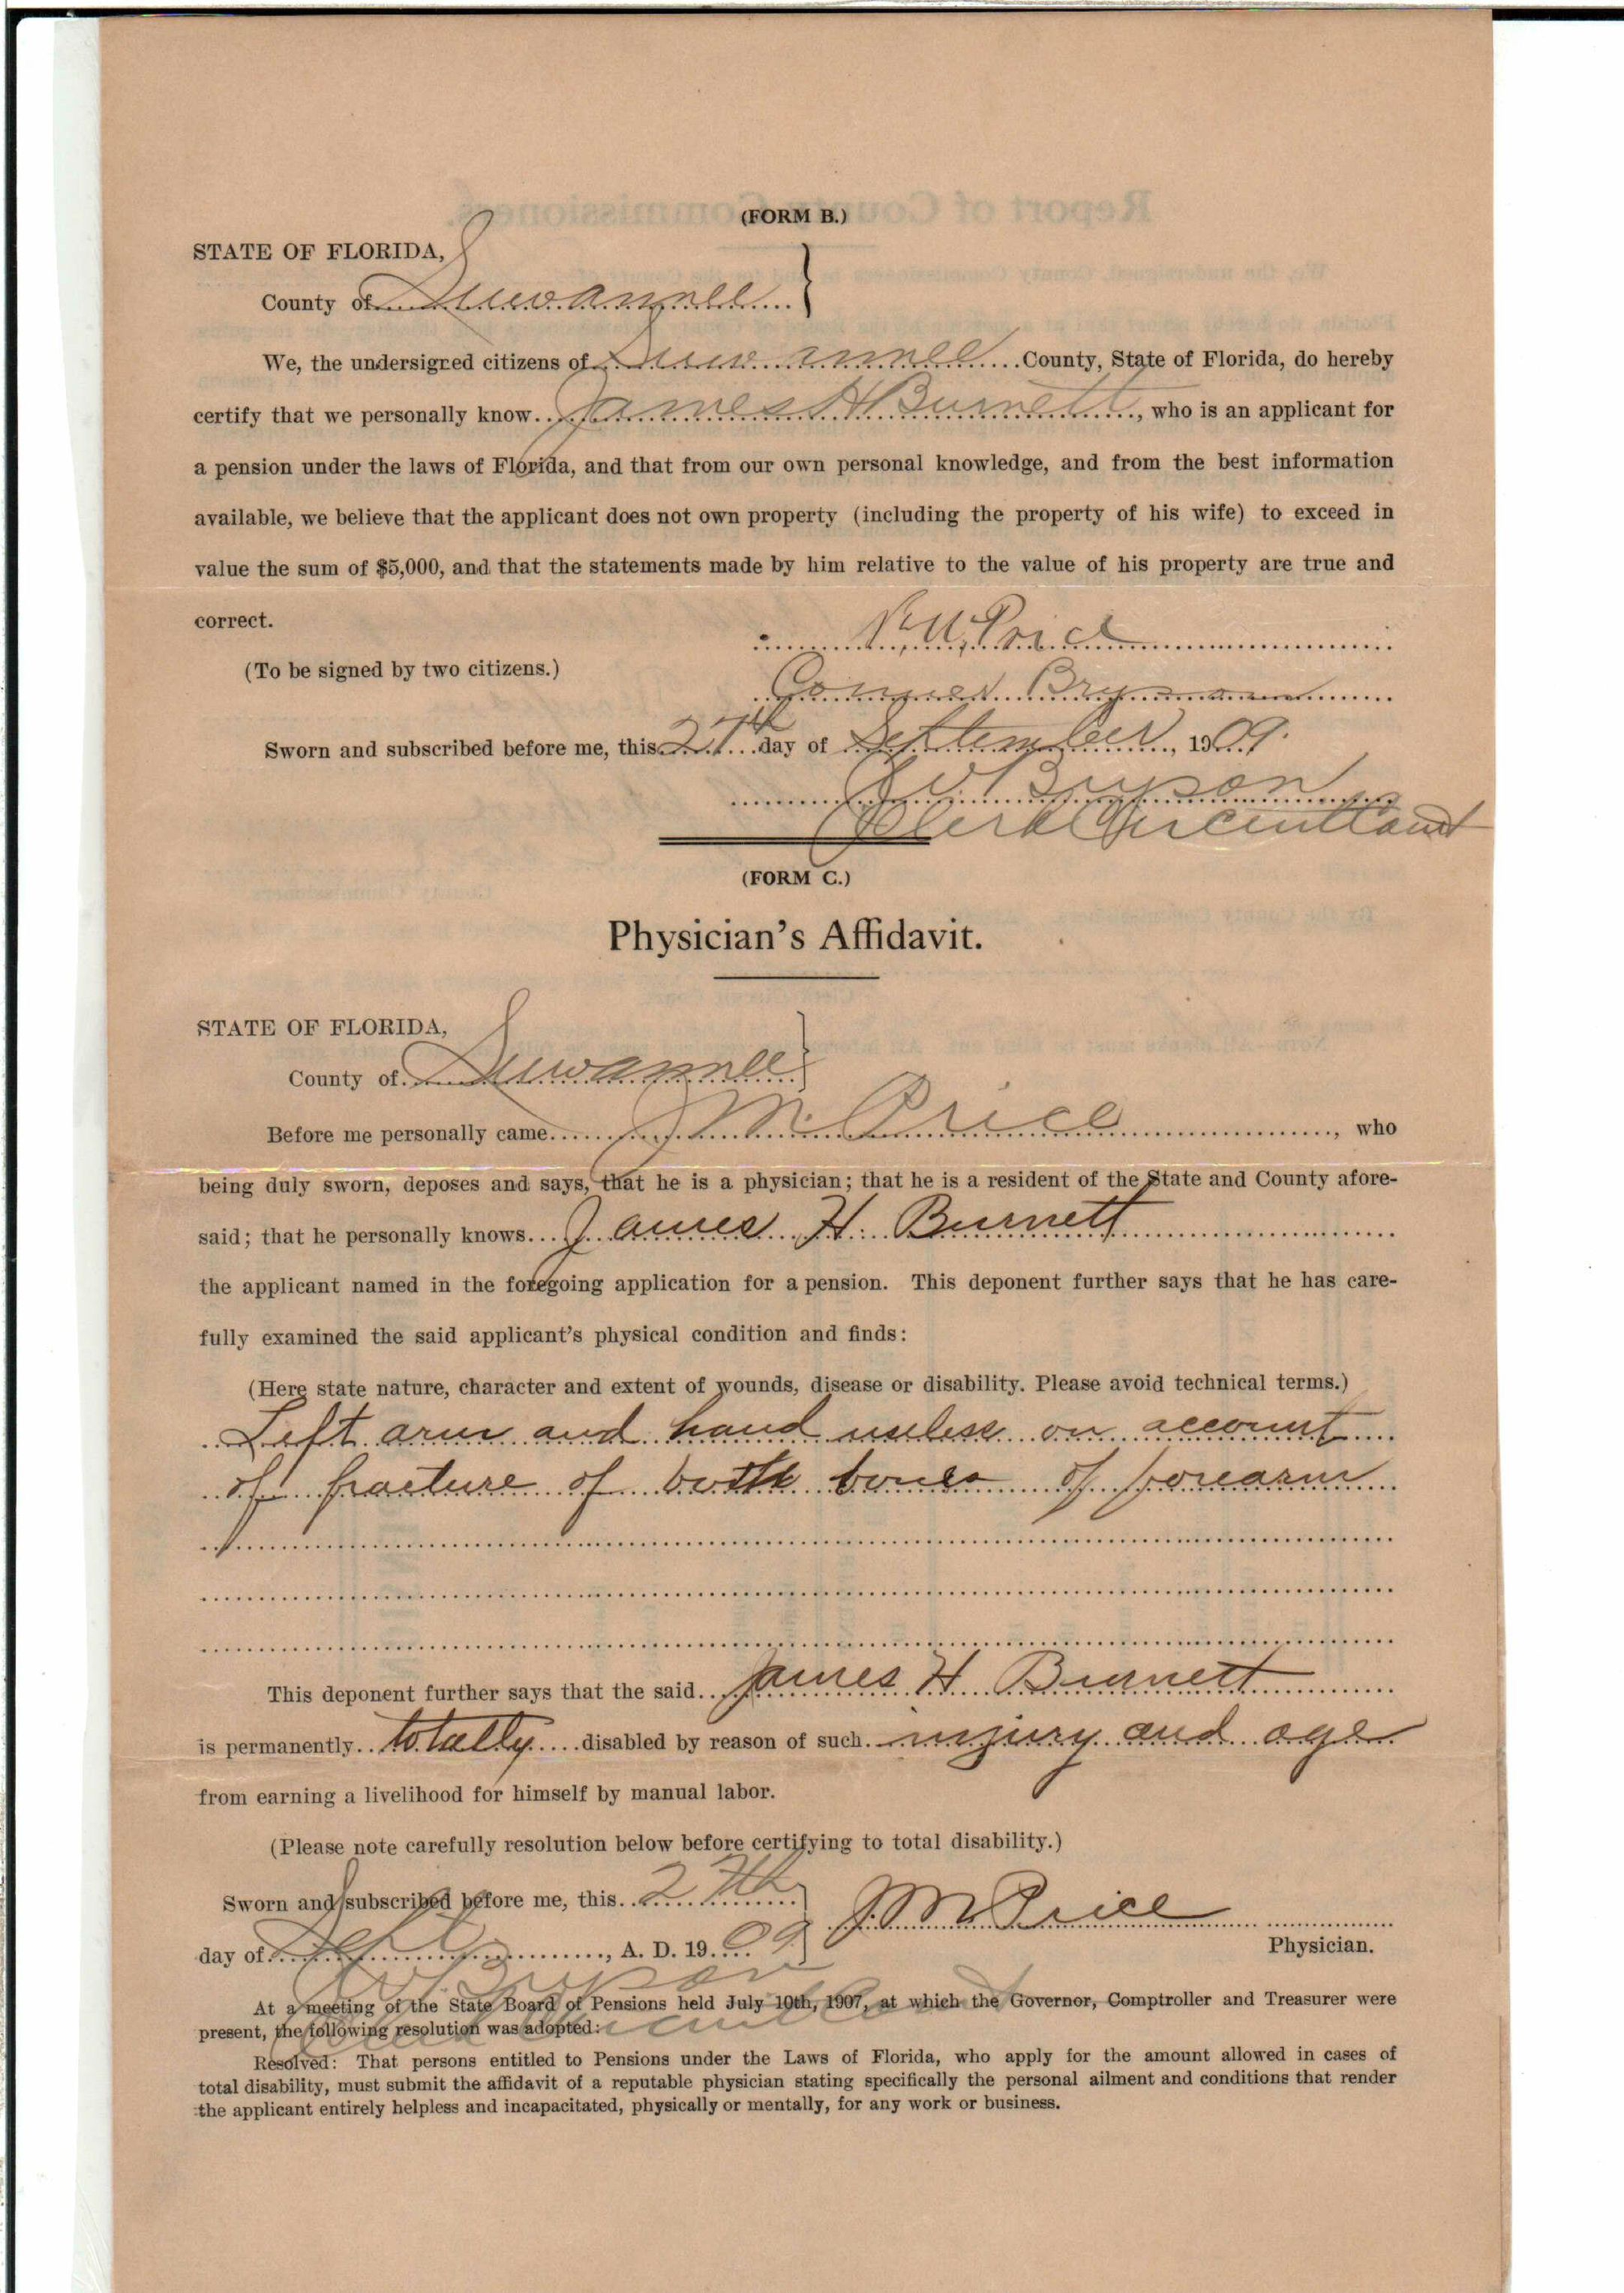 (FORM B.)
STATE OF FLORIDA,
County of Suwannee
We, the undersigned citizens of Suwannee County, State of Florida, do hereby
certify that we personally know James H Burnett, who is an applicant for
a pension under the laws of Florida, and that from our own personal knowledge, and from the best information
available, we believe that the applicant does not own property (including the property of his wife) to exceed in
value the sum of $5,000, and that the statements made by him relative to the value of his property are true and
correct.
Price
(To be signed by two citizens.)
Sworn and subscribed before me, this 27th day of September, 1909.
Bryson
Clerk Circuit Court
(FORM C.)
Physician's Affidavit.
STATE OF FLORIDA,
County of Suwannee
Before me personally came J. M. Price, who
being duly sworn, deposes and says, that he is a physician; that he is a resident of the State and County afore-
said; that he personally knows James H. Burnett
the applicant named in the foregoing application for a pension. This deponent further says that he has care-
fully examined the said applicant's physical condition and finds:
(Here state nature, character and extent of wounds, disease or disability. Please avoid technical terms.)
Left arm and hand useless on account
of fracture of both bones of forearm
This deponent further says that the said James H Burnett
is permanently totally disabled by reason of such injury and age
from earning a livelihood for himself by manual labor.
(Please note carefully resolution below before certifying to total disability.)
Sworn and subscribed before me, this 27th
J. M. Price
day of Sept, A. D. 1909
Physician.
Bryson
Clerk Circuit Court
At a meeting of the State Board of Pensions held July 10th, 1907, at which the Governor, Comptroller and Treasurer were
present, the following resolution was adopted:
Resolved: That persons entitled to Pensions under the Laws of Florida, who apply for the amount allowed in cases of
total disability, must submit the affidavit of a reputable physician stating specifically the personal ailment and conditions that render
the applicant entirely helpless and incapacitated, physically or mentally, for any work or business.